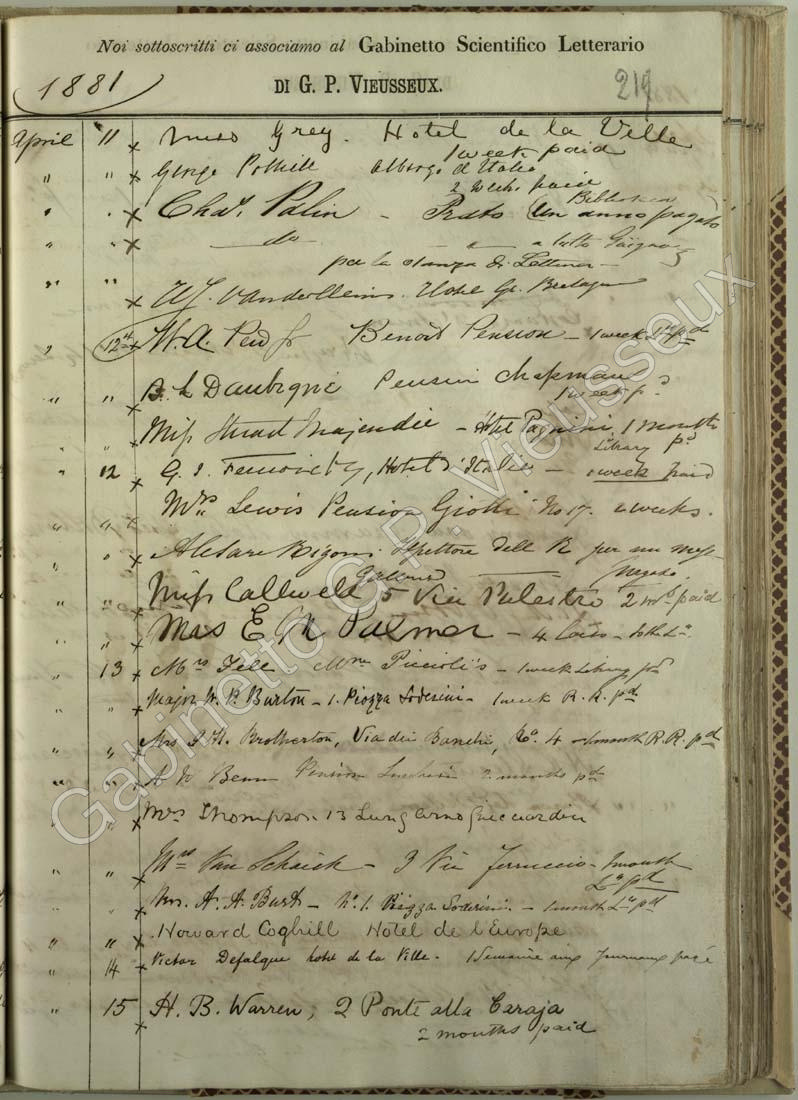 Noi sottoscritti ci associamo al Gabinetto Scientifico Letterario
DI G. P. VIEUSSEUX.
1881
219
April 11 x Miss Grey. Hotel de la Ville
1 week paid
" " x George Polhill albergo d'Italia
2 weeks paid
" " x Chas. Palin - Prato Biblioteca
un anno pagato
" " x do - " a tutto Giugno
per la stanza di Lettura -
" " x Hotel Gr. Bretagne
" 12th x W. A. Benoit Pension - 1 week Ly pd
" " x Daubigné Pension Chapman
1 week pd
" " x Miss Stuart Majendie - Hotel Paquini, 1 month
Library pd
" 12 x G. Hotel d'Italie - 1 week paid
" " x Mrs. Lewis Pension Giotti No 17. 2 weeks.
" " x Ispettore dell R per un mese
pagato
" " x Miss Callwell 5 Via Palestro 2 ms. paid
" " x Palmer - 4
" 13 x Mrs Fell Mme Piccioli's - 1 week Library pd
" " x Major W. P. Burton - 1. Piazza Soderini - 1 week R. R. pd
" " x Mrs J. H. Brotherton, Via dei Banchi, No. 4 - 1 month R. R. pd
" " x A W Benn Pension 2 months pd
" " x Mrs Thompson 13 Lung'arno Guicciardini
" " x Mrs Van Schaick - 3 Via Ferruccio - 1 month
Ly pd
" " x Mrs. A. A. Burt - No. 1. Piazza Soderini. - 1 month Ly pd
" " x Howard Coghill Hotel de l'Europe
" 14 Victor Defalque hotel de la Ville. 1 Semaine aux Journaux payé
" 15 x H. B. Warren, 2 Ponte alla Caraja
2 months paid
Gabinetto G. P. Vieusseux